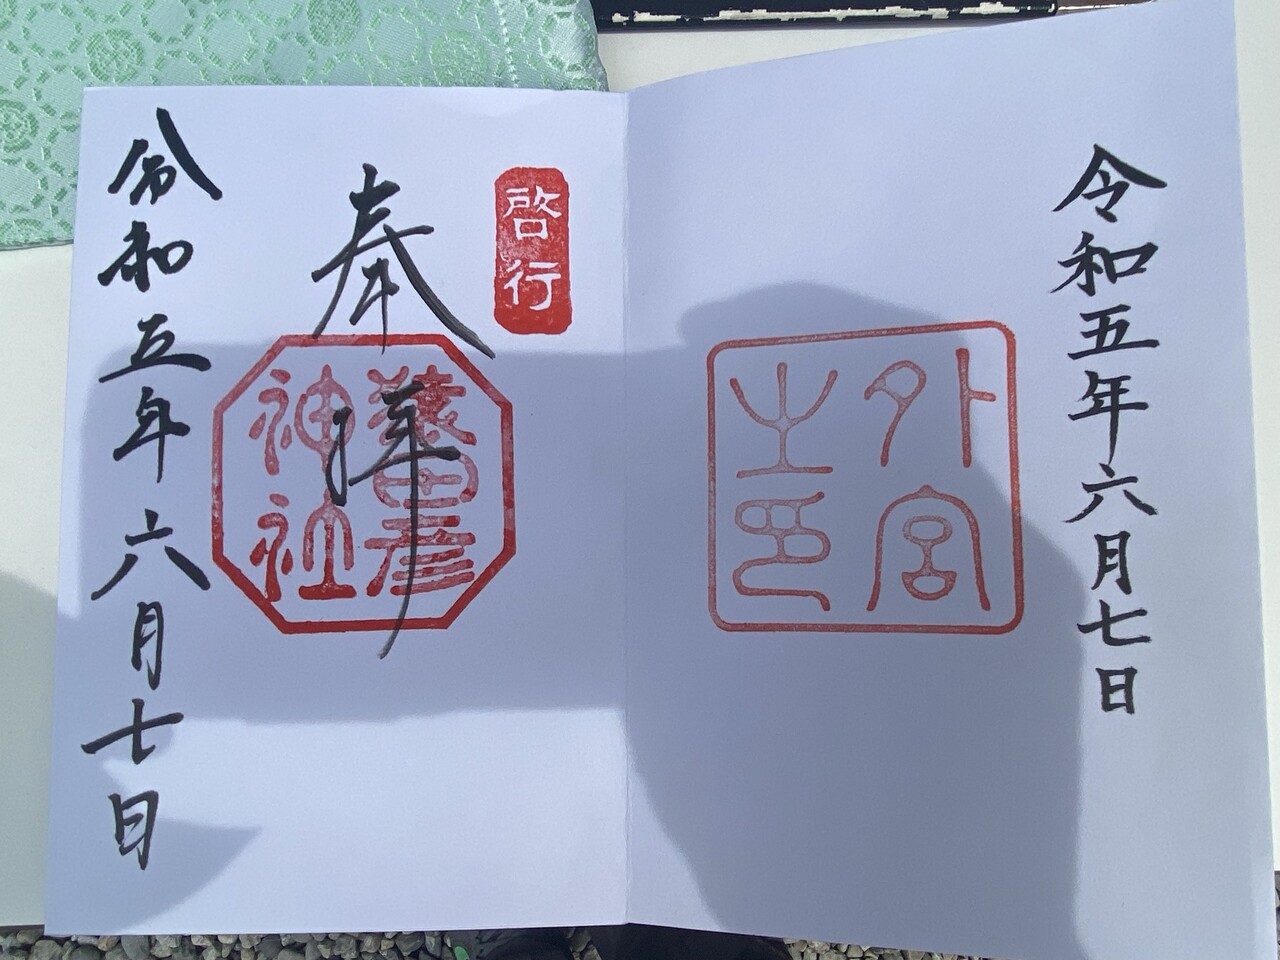 令和五年六月七日
外宮
之印
啓行
奉拝
猿田彦
神社
令和五年六月七日